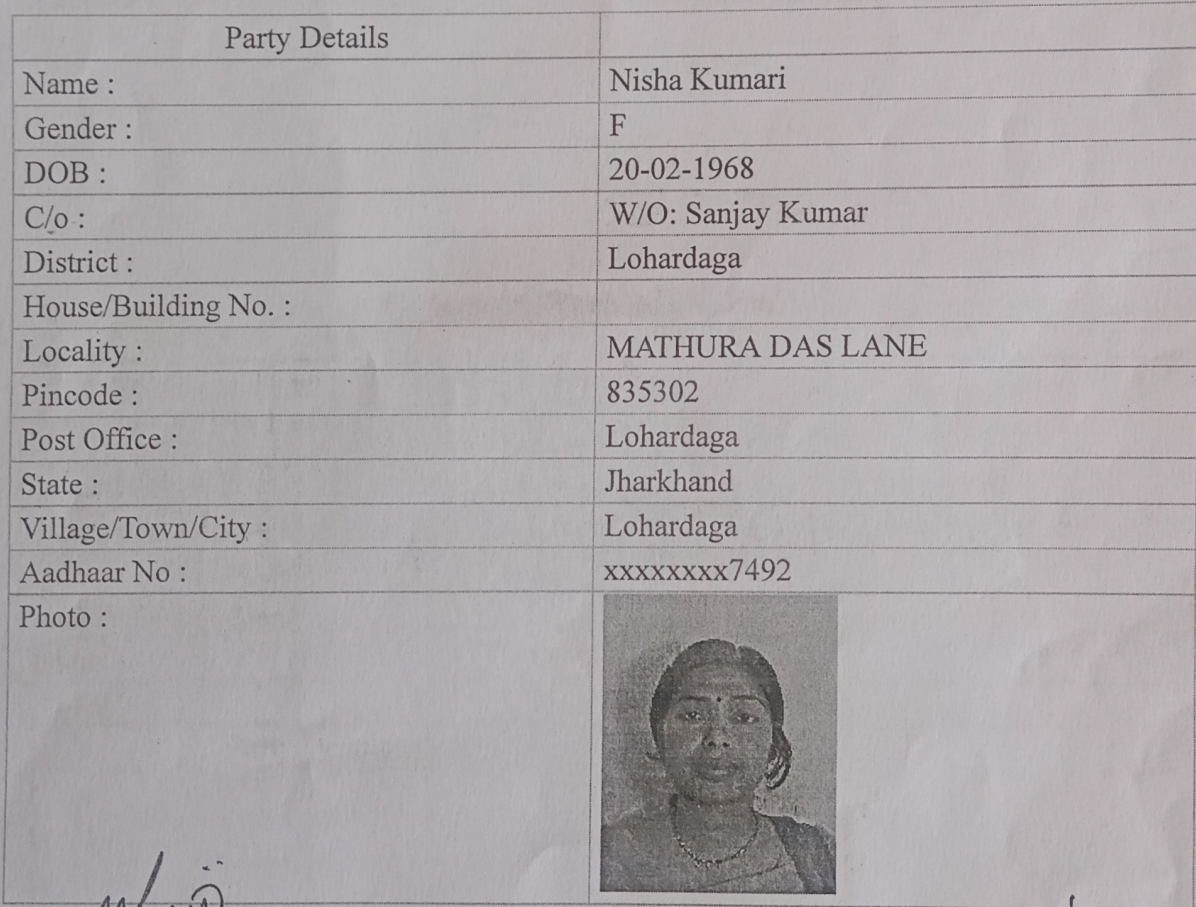 Party Details
Name : Nisha Kumari
Gender : F
DOB : 20-02-1968
C/o : W/O: Sanjay Kumar
District : Lohardaga
House/Building No. :
Locality : MATHURA DAS LANE
Pincode : 835302
Post Office : Lohardaga
State : Jharkhand
Village/Town/City : Lohardaga
Aadhaar No : xxxxxxxx7492
Photo :